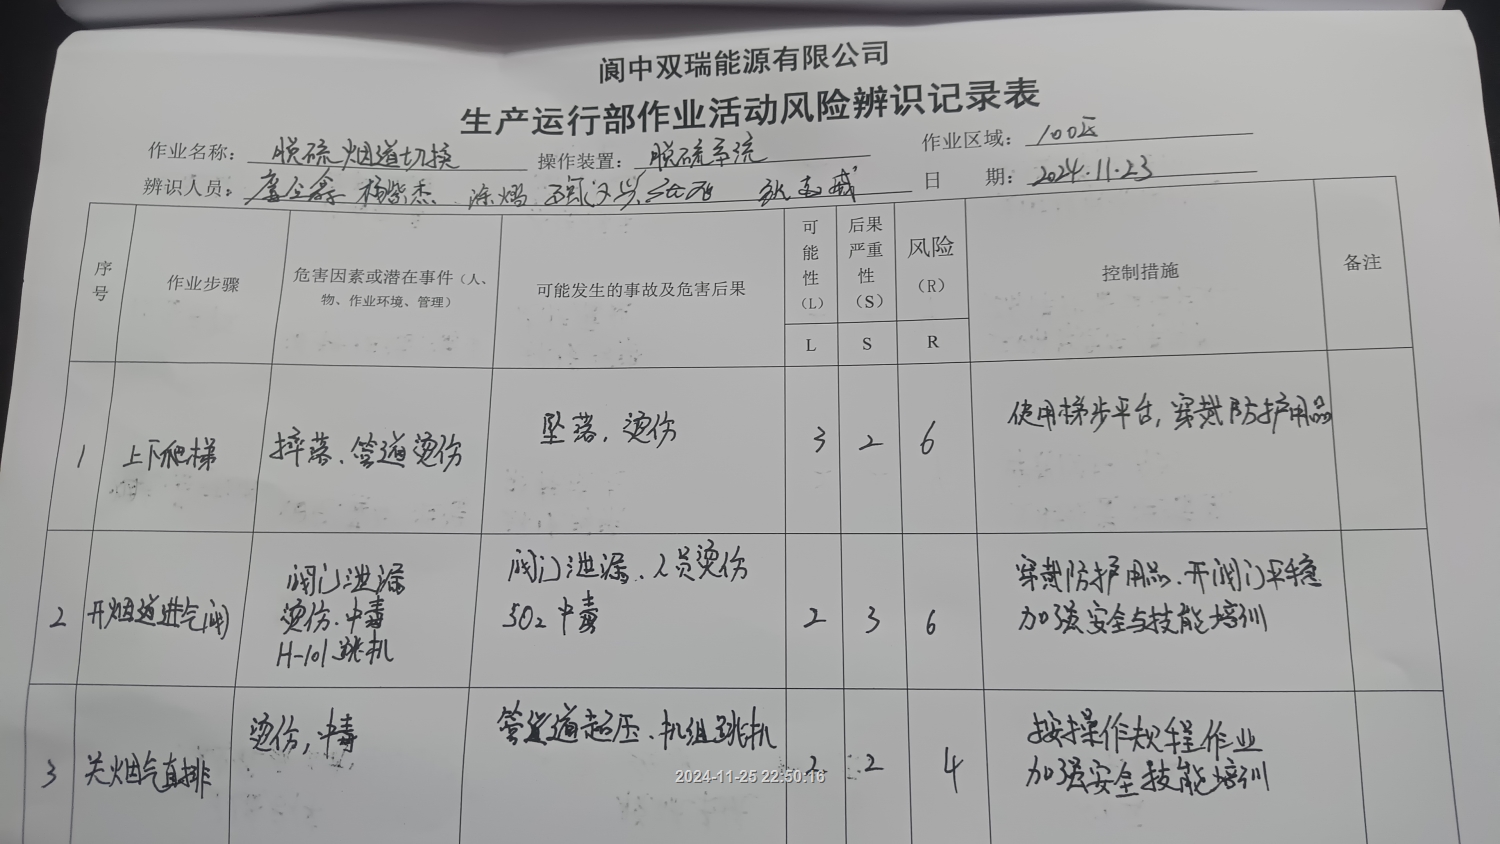 阆中双瑞能源有限公司
生产运行部作业活动风险辨识记录表
作业名称： 脱硫烟道切换 操作装置： 脱硫系统 作业区域： 100区
辨识人员： 杨紫杰 涂熠 日 期： 2024.11.23
序号 作业步骤 危害因素或潜在事件（人、物、作业环境、管理） 可能发生的事故及危害后果 可能性（L） 后果严重性（S） 风险（R） 控制措施 备注
L S R
1 上下爬梯 摔落、管道烫伤 坠落，烫伤 3 2 6 使用梯步平台，穿戴防护用品
2 开烟道进气阀 阀门泄漏 烫伤、中毒 H-101跳机 阀门泄漏、人员烫伤 SO2中毒 2 3 6 穿戴防护用品、开阀门平稳 加强安全与技能培训
3 关烟气直排 烫伤，中毒 管道超压、机组跳机 2 2 4 按操作规程作业 加强安全技能培训
2024-11-25 22:50:16